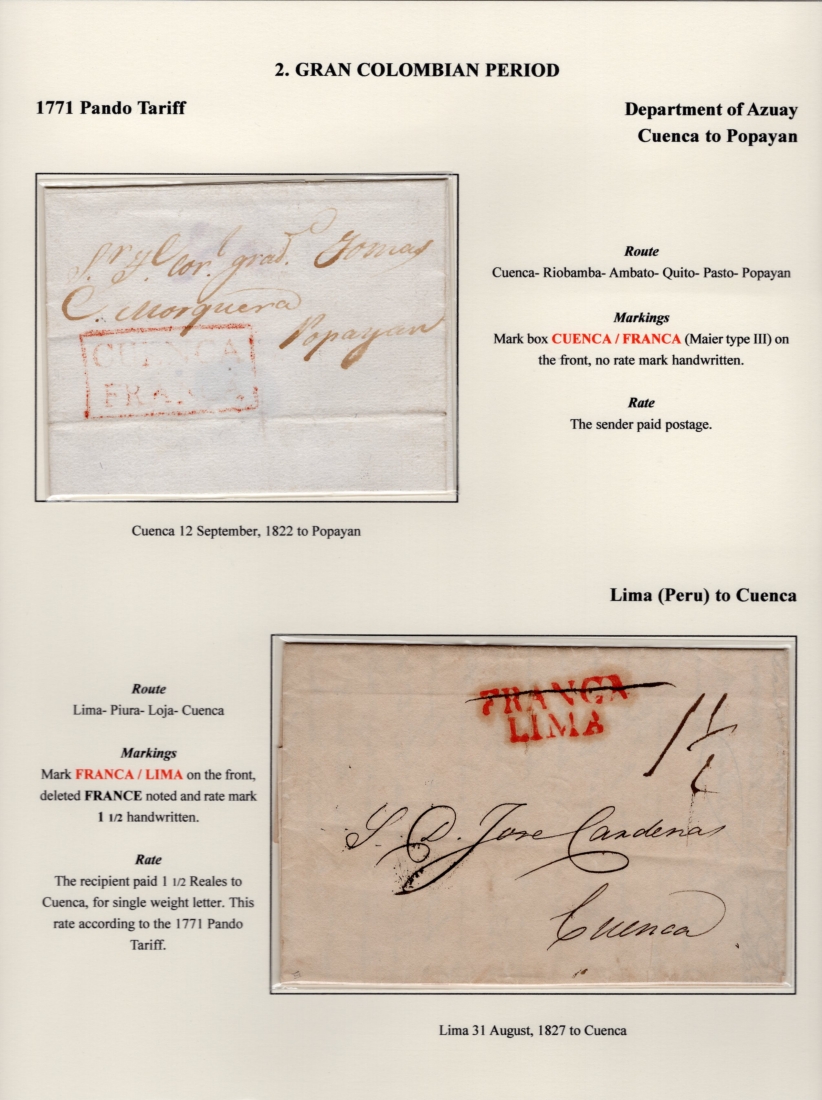 2. GRAN COLOMBIAN PERIOD
1771 Pando Tariff
Department of Azuay
Cuenca to Popayan
Sr. Tl. Cor.l grad.l Tomas
C. Mosquera
Popayan
CUENCA
FRANCA
Route
Cuenca- Riobamba- Ambato- Quito- Pasto- Popayan
Markings
Mark box CUENCA / FRANCA (Maier type III) on
the front, no rate mark handwritten.
Rate
The sender paid postage.
Cuenca 12 September, 1822 to Popayan
Lima (Peru) to Cuenca
Route
Lima- Piura- Loja- Cuenca
Markings
Mark FRANCA / LIMA on the front,
deleted FRANCE noted and rate mark
1 1/2 handwritten.
Rate
The recipient paid 1 1/2 Reales to
Cuenca, for single weight letter. This
rate according to the 1771 Pando
Tariff.
FRANCA
LIMA
1 1/2
S. D. Jose Cardenas
Cuenca
Lima 31 August, 1827 to Cuenca